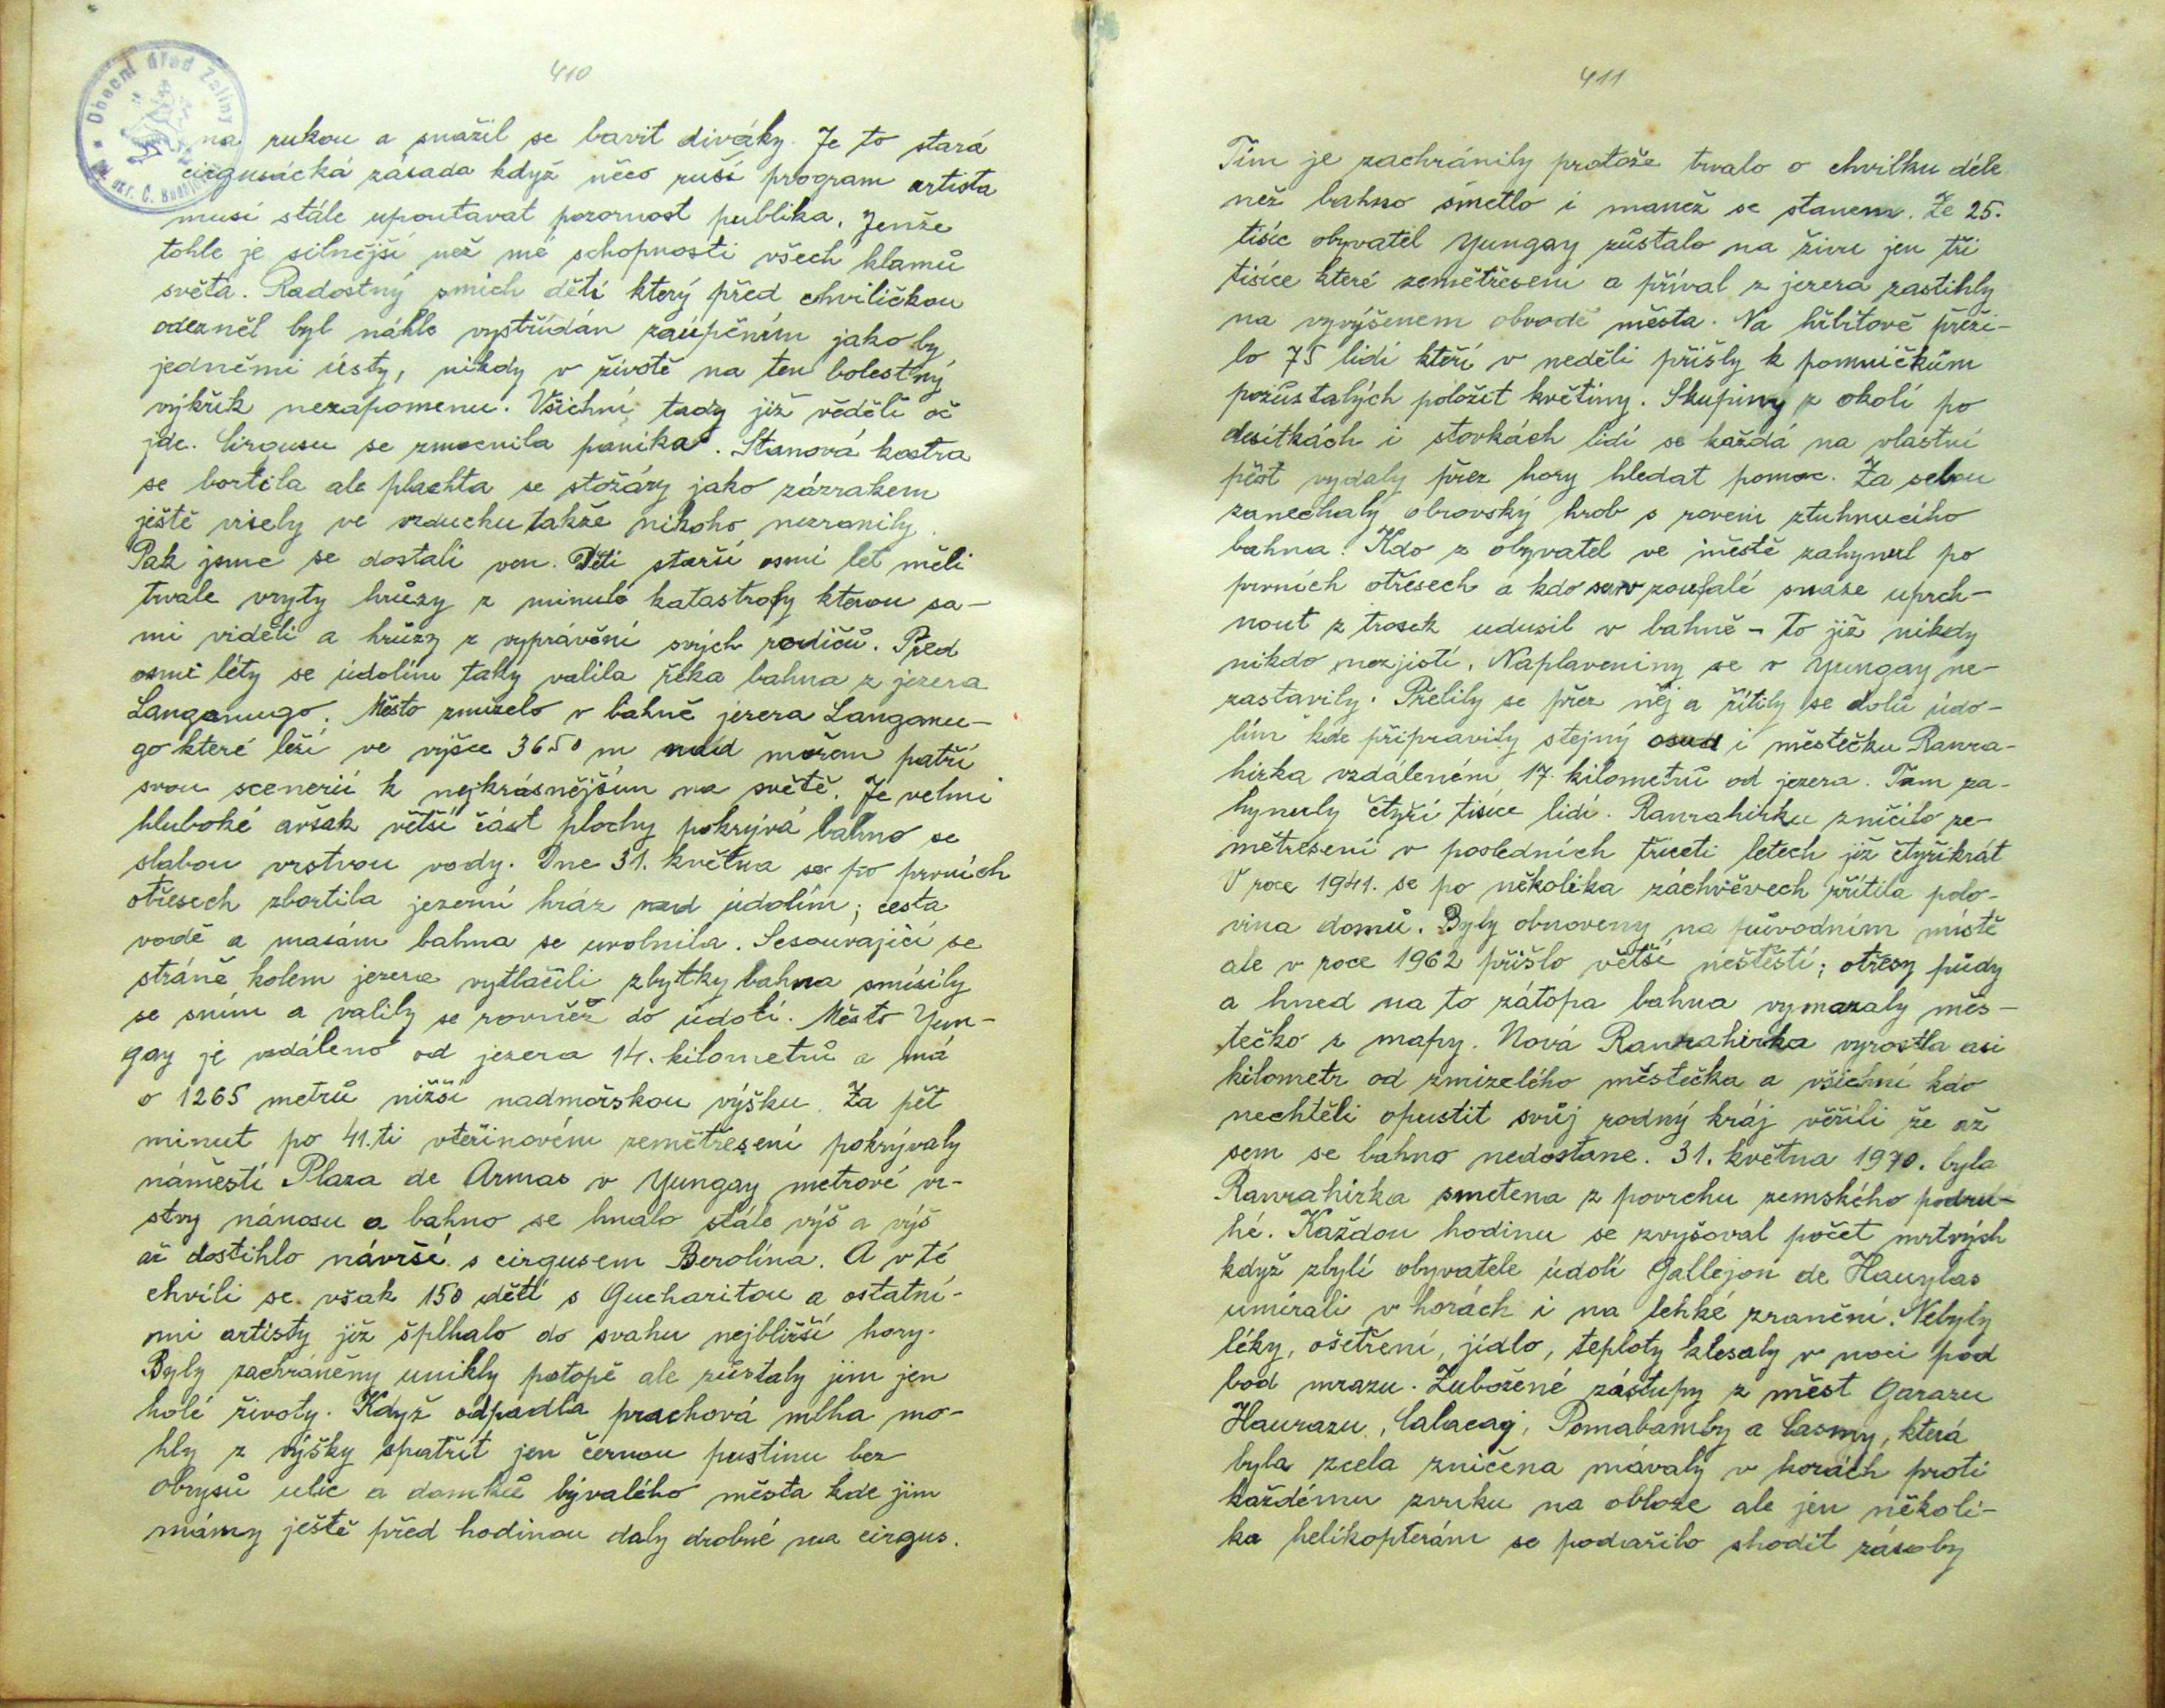 410
Obecní úřad Zaliny
okr. Č. Buděj
na rukou a snažil se bavit diváky. Je to stará
cirgusácká zásada když něco ruší program artista
musí stále upoutavat pozornost publika. Jenže
tohle je silnější než mé schopnosti všech klamů
světa. Radostný smích dětí který před chviličkou
odezněl byl náhle vystřídán zaúpěním jako by
jedněmi ústy, nikdy v životě na ten bolestný
výkřik nezapomenu. Všichni tady již věděli oč
jde. Cirgusu se zmocnila panika. Stanová kostra
se bortila ale plachta se stožáry jako zázrakem
ještě visely ve vzduchu takže nikoho nezranily.
Pak jsme se dostali ven. Děti starší osmi let měli
trvale vryty hrůzy z minulé katastrofy kterou sa-
mi viděli a hrůzy z vyprávění svých rodičů. Před
osmi léty se údolím taky valila řeka bahna z jezera
Langanugo. Město zmizelo v bahně jezera Langanu-
go které leží ve výšce 3650 m nad mořem patří
svou scenerií k nejkrásnějším na světě. Je velmi
hluboké avšak větší část plochy pokrývá bahno se
slabou vrstvou vody. Dne 31. května se po prvních
otřesech zbortila jezerní hráz nad údolím; cesta
vodě a masám bahna se uvolnila. Sesouvající se
stráně kolem jezera vytlačili zbytky bahna smísily
se sním a valily se rovněž do údolí. Město Yun-
gay je vzdáleno od jezera 14. kilometrů a má
o 1265 metrů nižší nadmořskou výšku. Za pět
minut po 41.ti vteřinovém zemětřesení pokrývaly
náměstí Plaza de Armas v Yungay metrové vr-
stvy nánosu a bahno se hnalo stále výš a výš
až dostihlo návrší s cirgusem Berolina. A v té
chvíli se však 150 dětí s Gucharitou a ostatní-
mi artisty již šplhalo do svahu nejbližší hory.
Byly zachráněny unikly potopě ale zůstaly jim jen
holé životy. Když odpadla prachová mlha mo-
hly z výšky spatřit jen černou pustinu bez
obrysů ulic a domků bývalého města kde jim
mámy ještě před hodinou daly drobné na cirgus.
411
Tím je zachránily protože trvalo o chvilku déle
než bahno smetlo i manež se stanem. Ze 25.
tisíc obyvatel Yungay zůstalo na živu jen tři
tisíce které zemětřesení a příval z jezera zastihly
na vyvýšenem obvodě města. Na hřbitově přeži-
lo 75 lidí kteří v neděli přišly k pomníčkům
pozůstalých položit květiny. Skupiny z okolí po
desítkách i stovkách lidí se každá na vlastní
pěst vydaly přez hory hledat pomoc. Za sebou
zanechaly obrovský hrob s rovem ztuhnucího
bahna. Kdo z obyvatel ve městě zahynul po
prvních otřesech a kdo se v zoufalé snaze uprch-
nout z trosek udusil v bahně - to již nikdy
nikdo nezjistí. Naplaveniny se v Yungay ne-
zastavily. Přelily se přez něj a řítily se dolů údo-
lím kde připravily stejný osud i městečku Ranra-
hirka vzdáleném 17. kilometrů od jezera. Tam za-
hynuly čtyři tisíce lidí. Ranrahirku zničilo ze-
mětřesení v posledních třiceti letech již čtyřikrát
V roce 1941. se po několika záchvěvech zřítila polo-
vina domů. Byly obnoveny na původním místě
ale v roce 1962 přišlo větší neštěstí; otřesy půdy
a hned na to zátopa bahna vymazaly měs-
tečko z mapy. Nová Ranrahirka vyrostla asi
kilometr od zmizelého městečka a všichni kdo
nechtěli opustit svůj rodný kráj věřili že až
sem se bahno nedostane. 31. května 1970. byla
Ranrahirka smetena z povrchu zemského podru-
hé. Každou hodinu se zvyšoval počet mrtvých
když zbylí obyvatele údolí Gallejon de Hauylas
umírali v horách i na lehké zranění. Nebyly
léky, ošetření, jídlo, teploty klesaly v noci pod
bod mrazu. Zubožené zástupy z měst Garazu
Haurazu, Calacaj, Pomabamby a Casmy, která
byla zcela zničena mávaly v horách proti
každému zvuku na obloze ale jen několi-
ka helikopterám se podařilo shodit zásoby